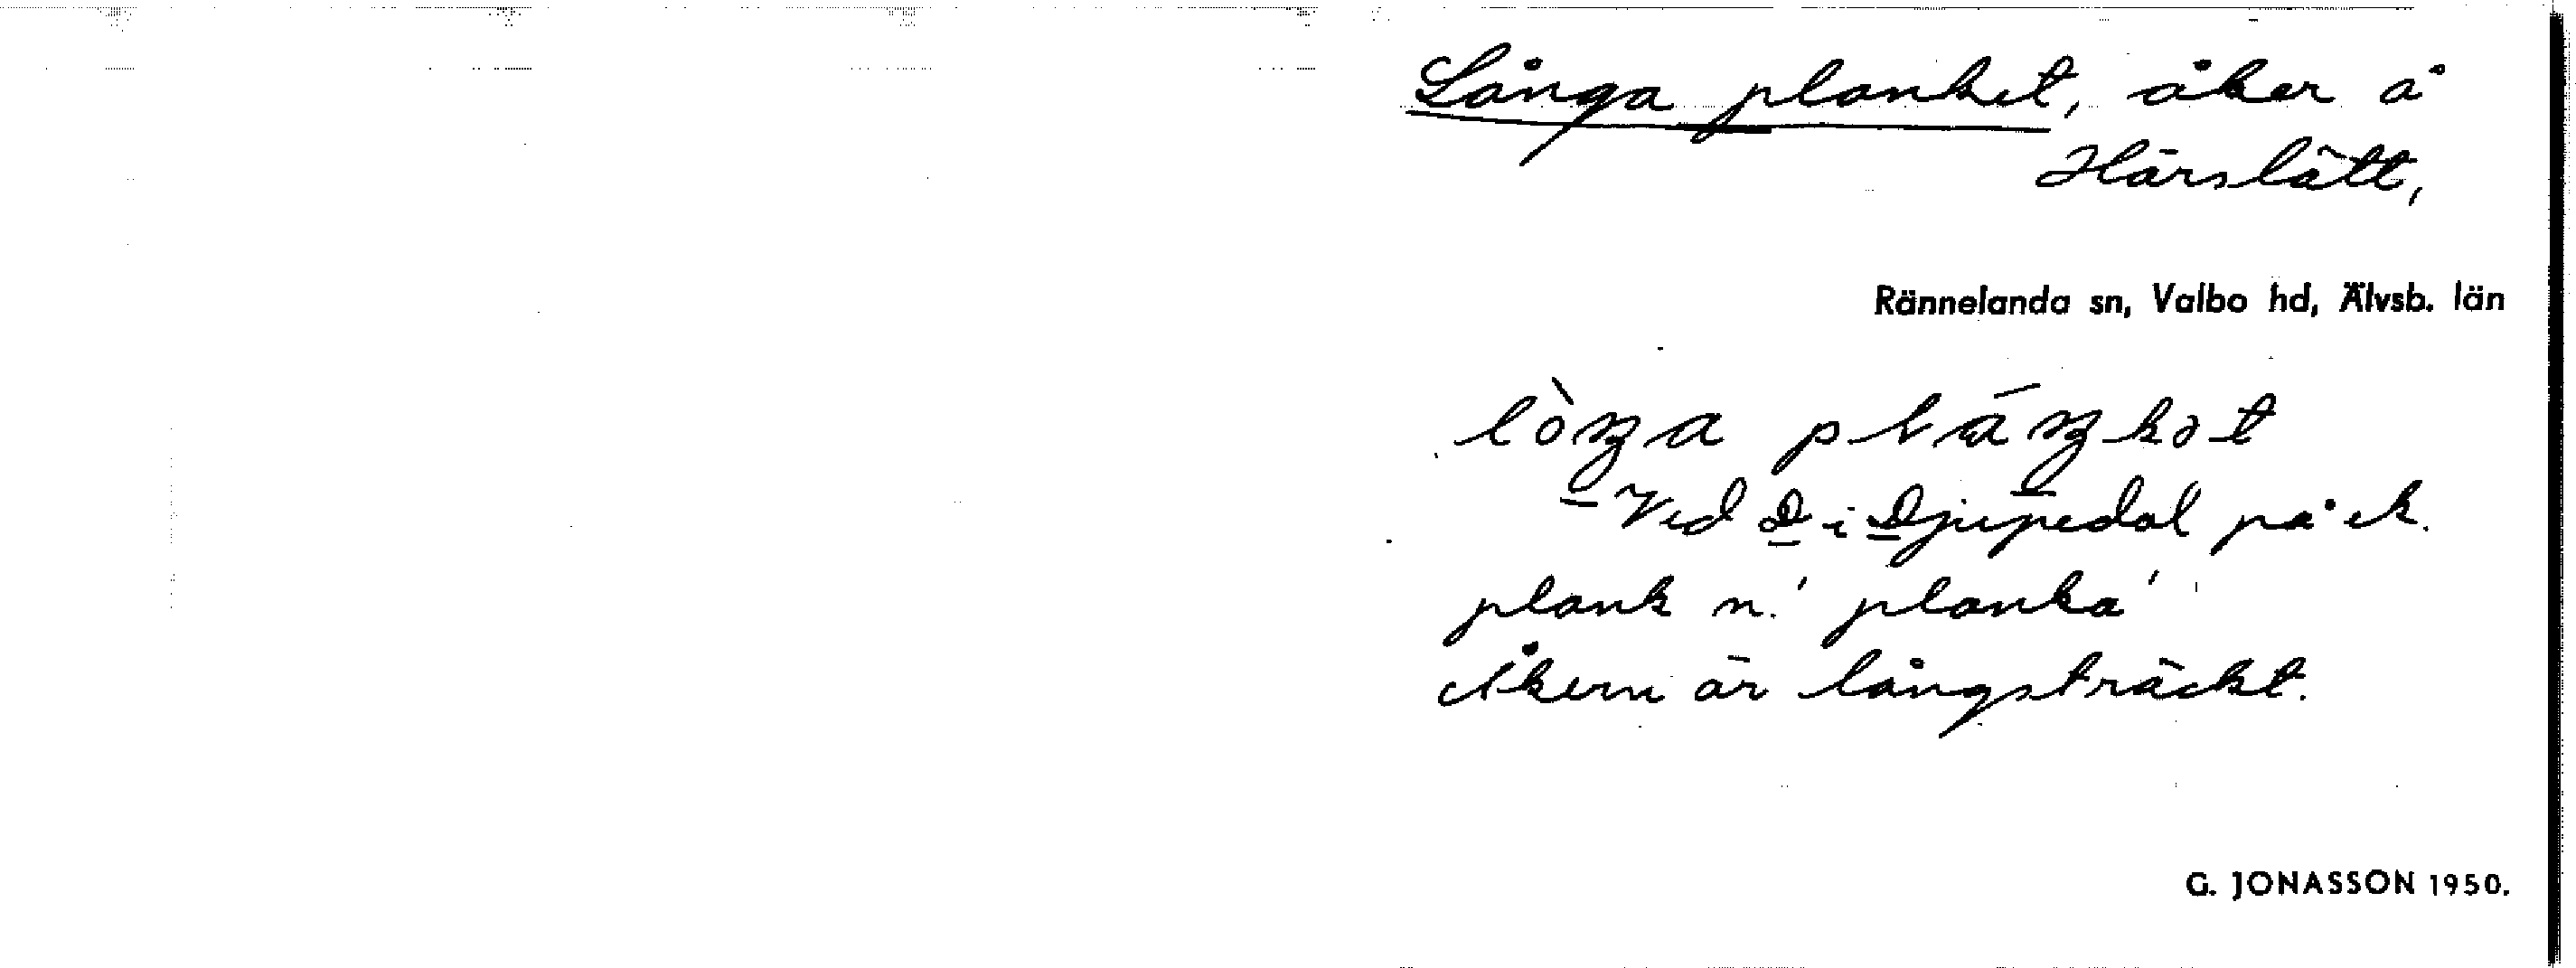 Långa planket, åker å
Härslätt,
Rännelanda sn, Valbo hd, Älvsb. län
lòŋa pláŋkət
Ved D i Djupedal på ek.
plank n.' planka'
Åkern är långsträckt.
G. JONASSON 1950.